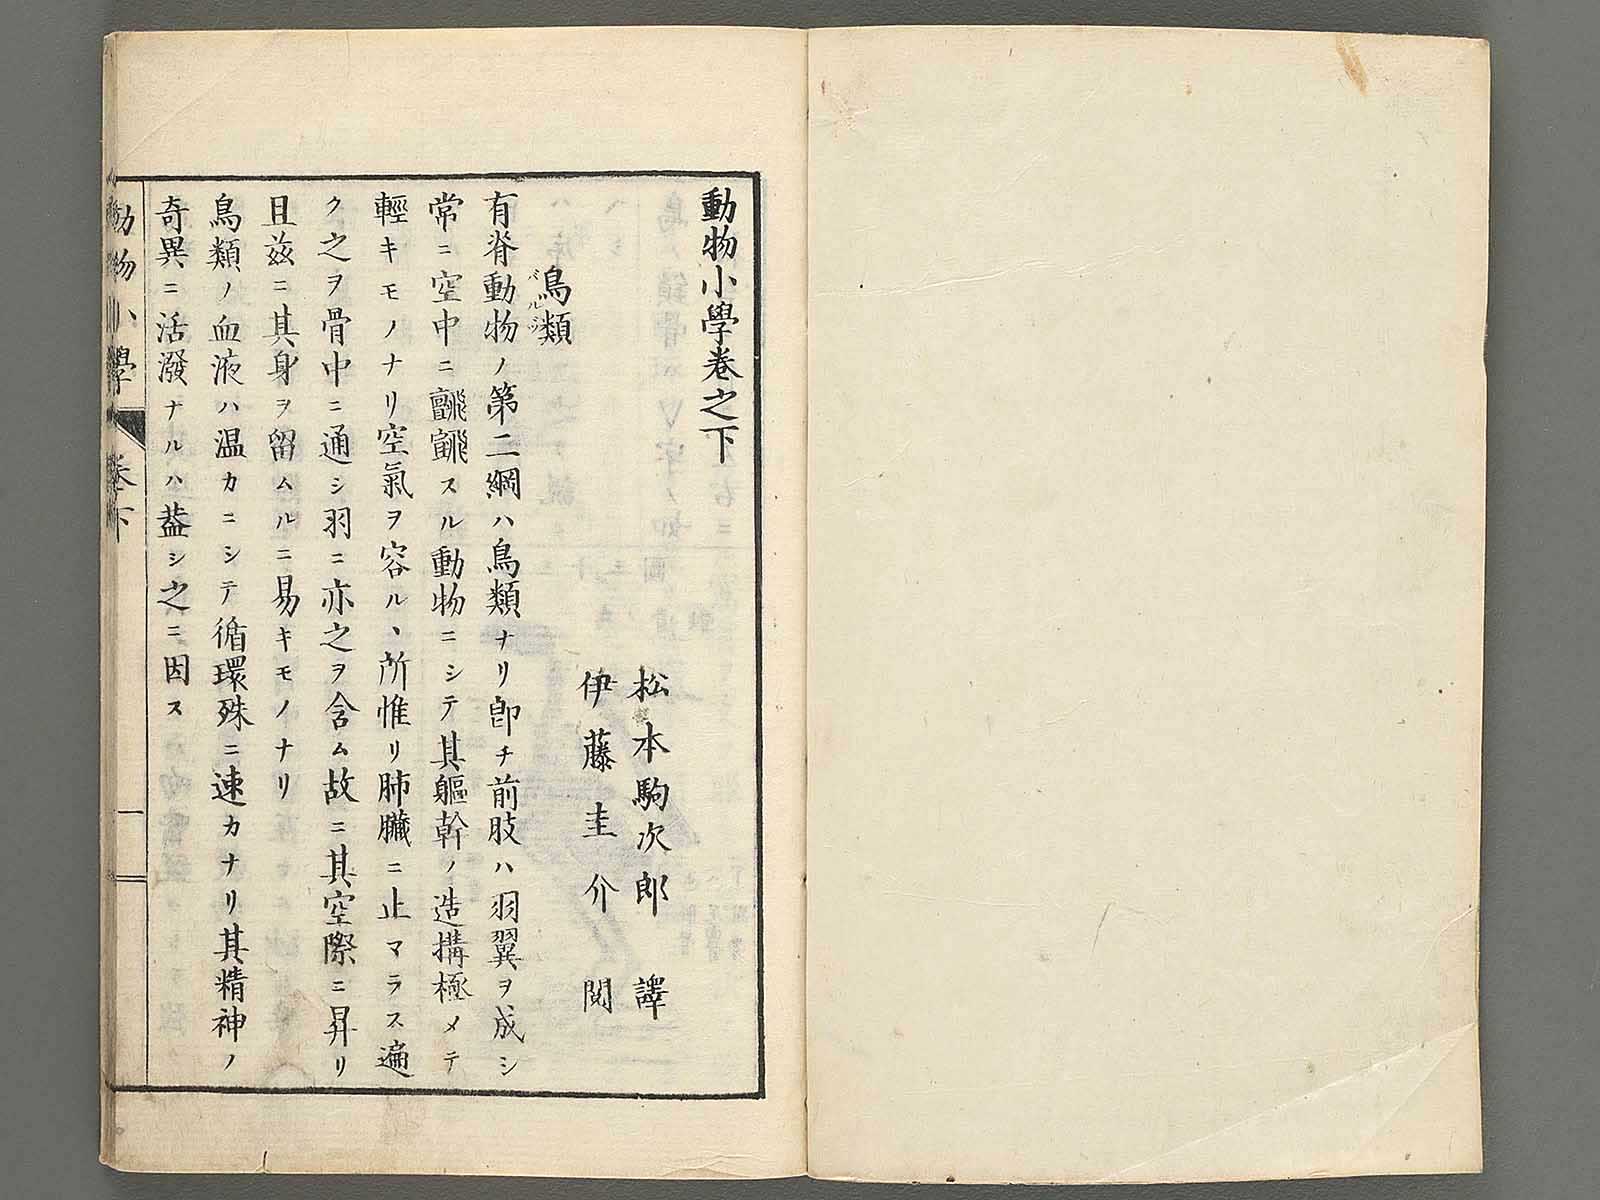 動物小學卷之下
松本駒次郎 譯
伊藤圭介 閱
鳥類
バルジ
有脊動物ノ第二綱ハ鳥類ナリ卽チ前肢ハ羽翼ヲ成シ
常ニ空中ニ翻翺スル動物ニシテ其軀幹ノ造搆極メテ
輕キモノナリ空氣ヲ容ルヽ所惟リ肺臟ニ止マラス遍
ク之ヲ骨中ニ通シ羽ニ亦之ヲ含ム故ニ其空際ニ昇リ
且茲ニ其身ヲ留ムルニ易キモノナリ
鳥類ノ血液ハ温カニシテ循環殊ニ速カナリ其精神ノ
奇異ニ活潑ナルハ葢シ之ニ因ス
動物小學 卷下 一